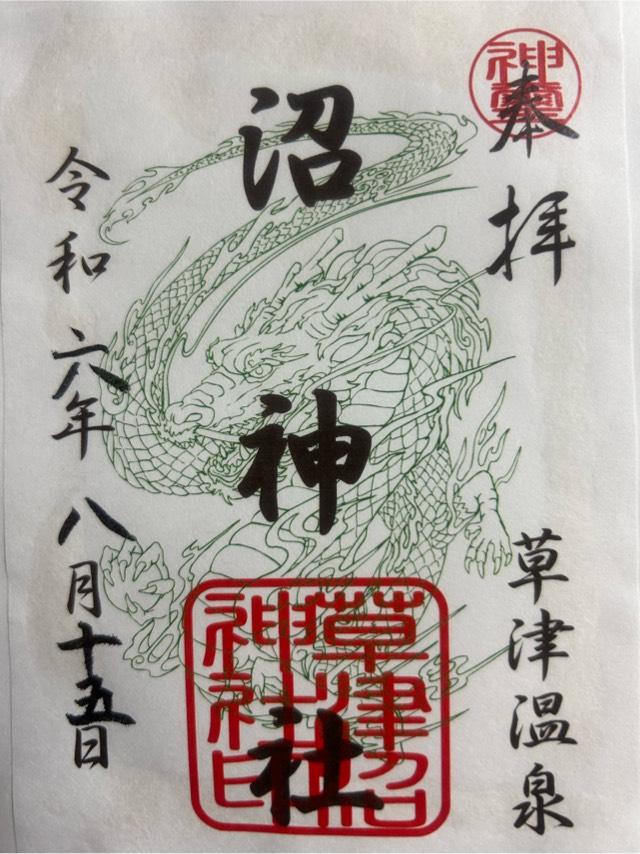 奉拝
草津温泉
沼神社
草津沼
神社印
令和六年八月十五日